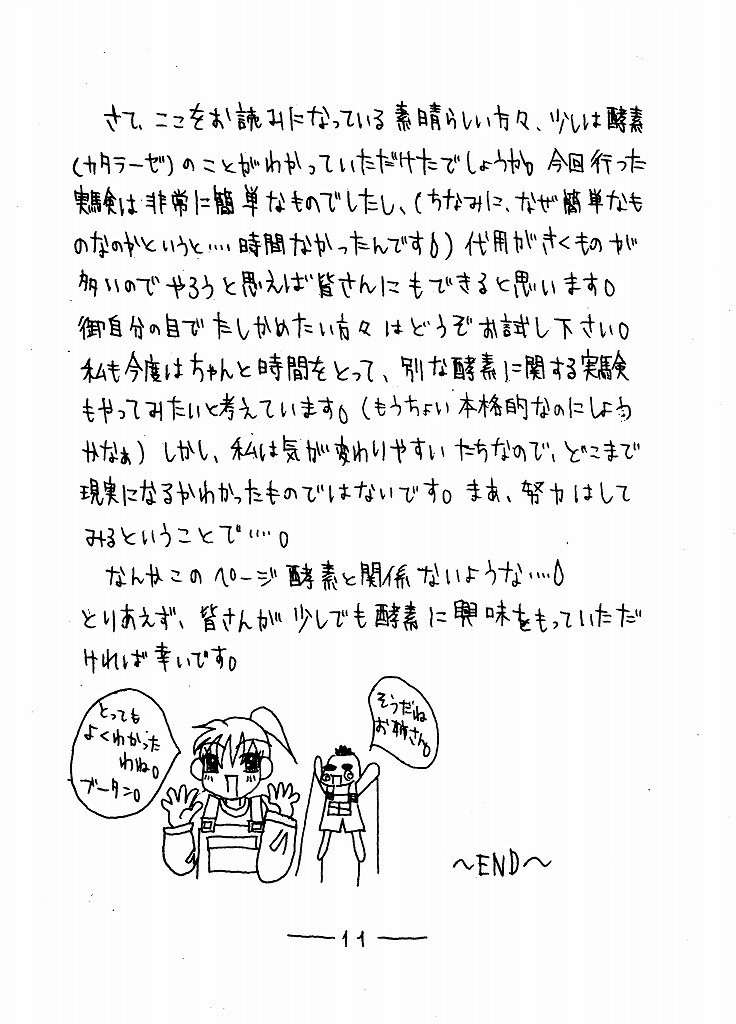 さて、ここをお読みになっている素晴らしい方々、少しは酵素
(カタラーゼ)のことがわかっていただけたでしょうか。今回行った
実験は非常に簡単なものでしたし、(ちなみに、なぜ簡単なも
のなのかというと…. 時間なかったんです)代用がきくものが
多いのでやろうと思えば皆さんにもできると思います。
御自分の目でたしかめたい方々はどうぞお試し下さい。
私も今度はちゃんと時間をとって、別な酵素に関する実験
もやってみたいと考えています。(もうちょい本格的なのにしよう
かなぁ)しかし、私は気が変わりやすいたちなので、どこまで
現実になるかわかったものではないです。まあ、努力はして
みるということで….。
なんかこのページ酵素と関係ないような….
とりあえず、皆さんが少しでも酵素に興味をもっていただ
ければ幸いです。
とっても
よくわかった
わね。
ブータン。
そうだね
お姉さん。
〜END〜
11